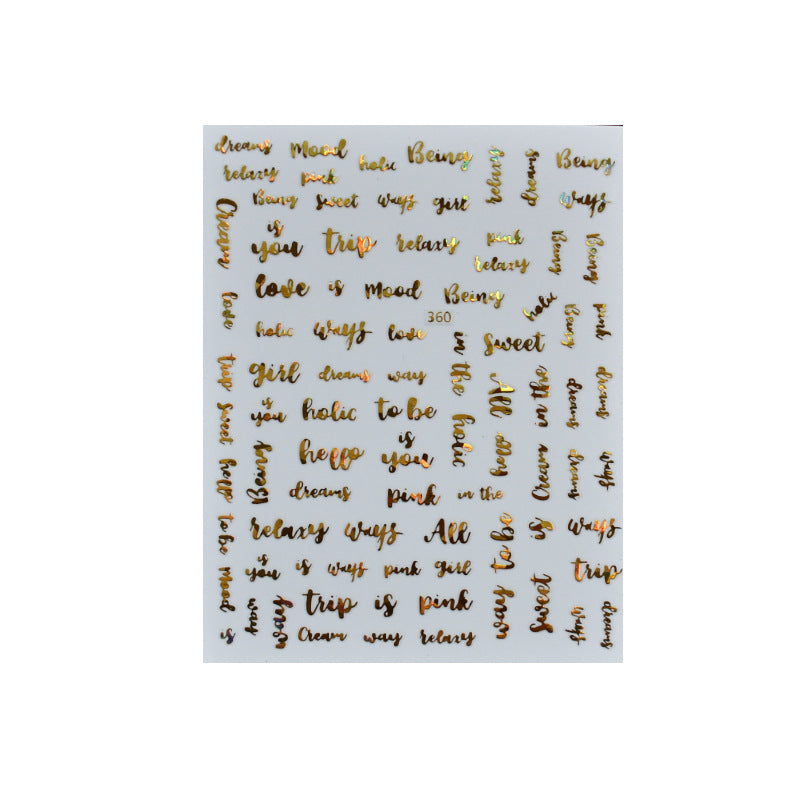 dreams Mood holic Being relaxy dreams Being
relaxy pink
Being Sweet ways girl ways
Cream is you trip relaxy pink relaxy Being Being
love is Mood Being holic Being pink
love holic ways love 360 in the holic Sweet
trip girl dreams way All in the dreams dreams
sweet is you holic to be hello Cream
hello Being hello is you dreams ways
dreams pink in the
to be relaxy ways All way to be is ways
mood is you is ways pink girl sweet trip
way way trip is pink ways dreams
is Cream way relaxy